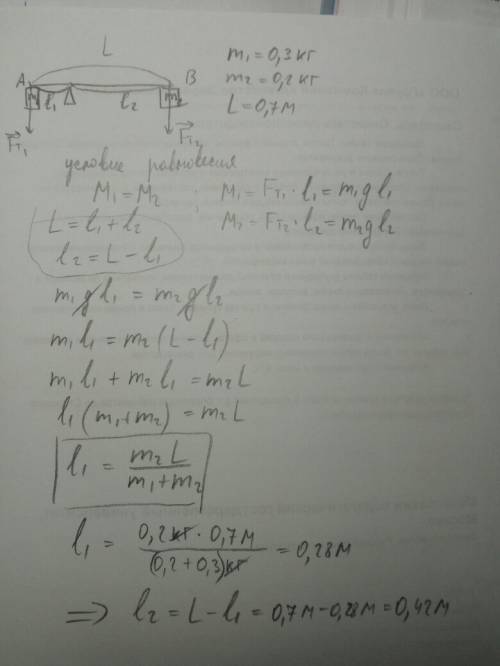 L
A
B
m₁
l₁
l₂
m₂
F⃗т₁
F⃗т₂
m₁ = 0,3 кг
m₂ = 0,2 кг
L = 0,7 м
условие равновесия
M₁ = M₂ ; M₁ = Fт₁ · l₁ = m₁ g l₁
M₂ = Fт₂ · l₂ = m₂ g l₂
L = l₁ + l₂
l₂ = L − l₁
m₁ g l₁ = m₂ g l₂
m₁ l₁ = m₂ (L − l₁)
m₁ l₁ + m₂ l₁ = m₂ L
l₁ (m₁ + m₂) = m₂ L
l₁ = m₂ L / m₁ + m₂
l₁ = 0,2 кг · 0,7 м / (0,2 + 0,3) кг = 0,28 м
⇒ l₂ = L − l₁ = 0,7 м − 0,28 м = 0,42 м